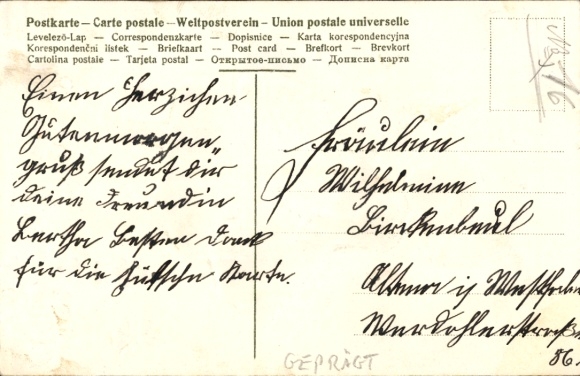 Postkarte – Carte postale – Weltpostverein – Union postale universelle
Levelező-Lap — Correspondenzkarte — Dopisnice — Karta korespondencyjna
Korespondenční lístek — Briefkaart — Post card — Brefkort — Brevkort
Cartolina postale — Tarjeta postal — Открытое-письмо — Дописна карта
Einen Herzichen
Gutenmorgen"
gruß sendet dir
deine Freundin
Bertha Besten Dank
für die hübsche Karte.
Fräulein
Wilhelmine
Birckenbeul
Altena i/ Westfale
Werdohlerstraße
86.
GEPRÄGT